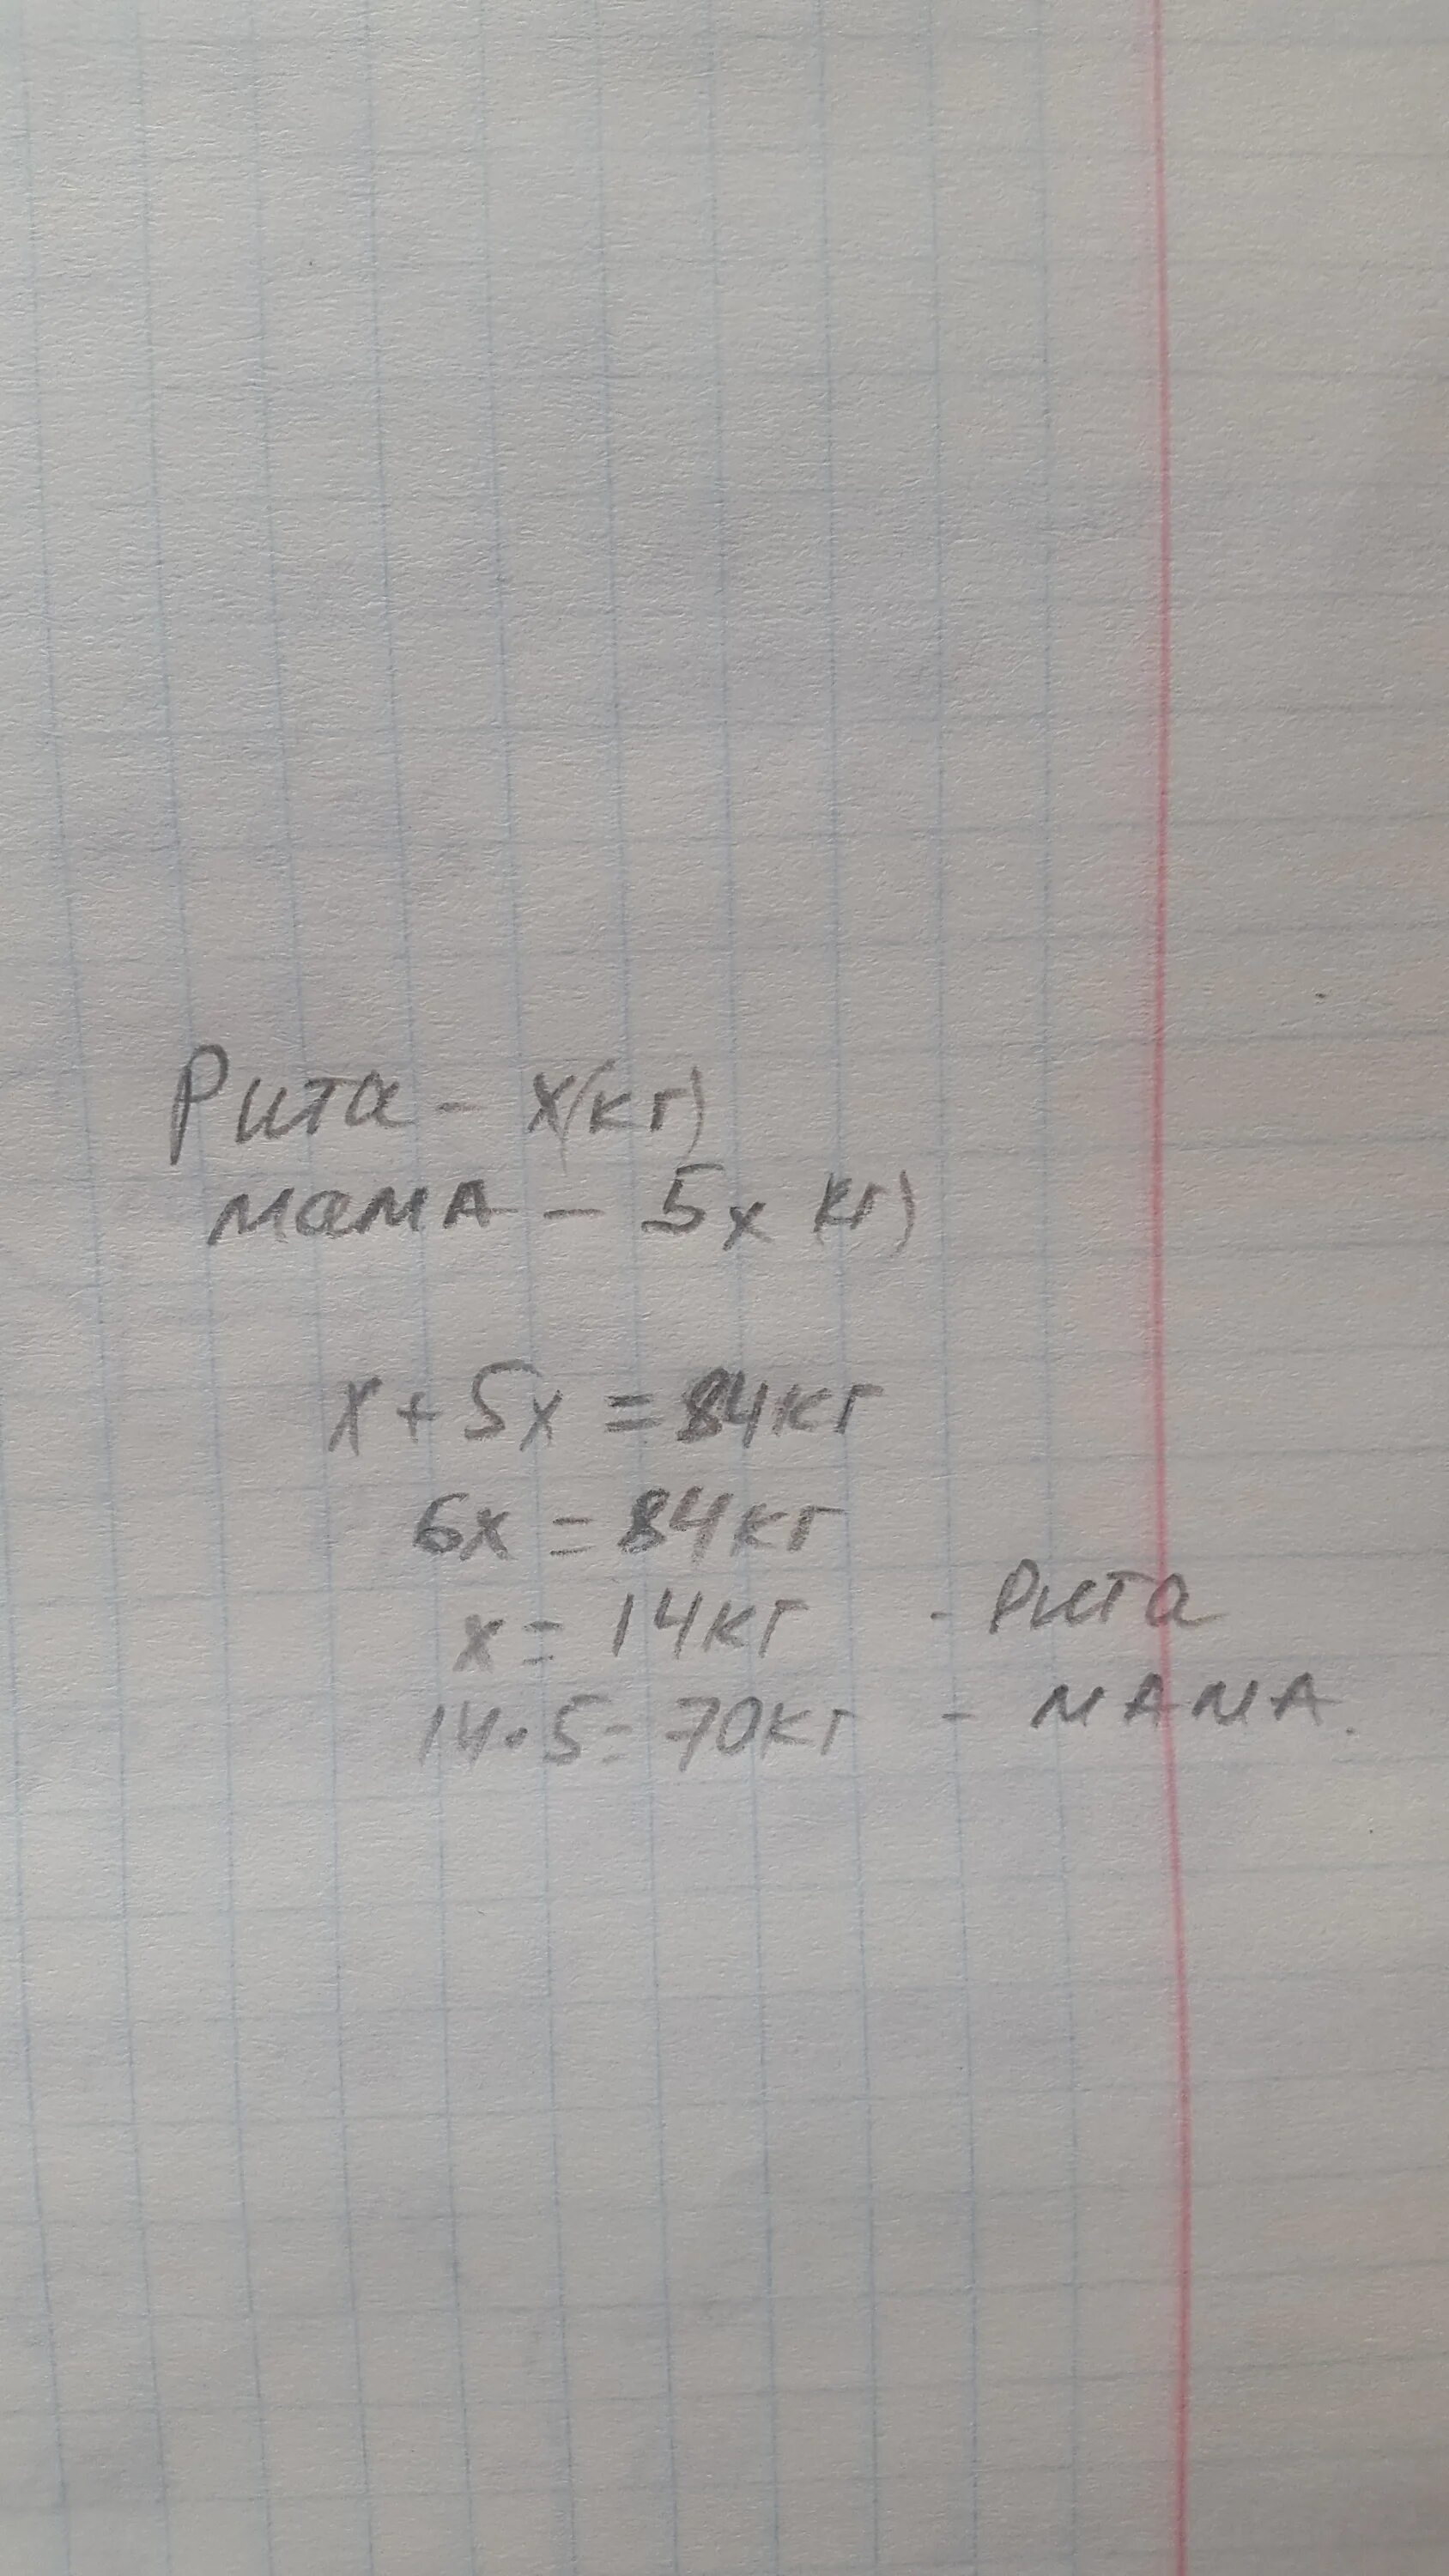 Рита - х(кг)
мама - 5х кг)
х + 5х = 84кг
6х = 84кг
х = 14кг - Рита
14·5= 70кг - мама.